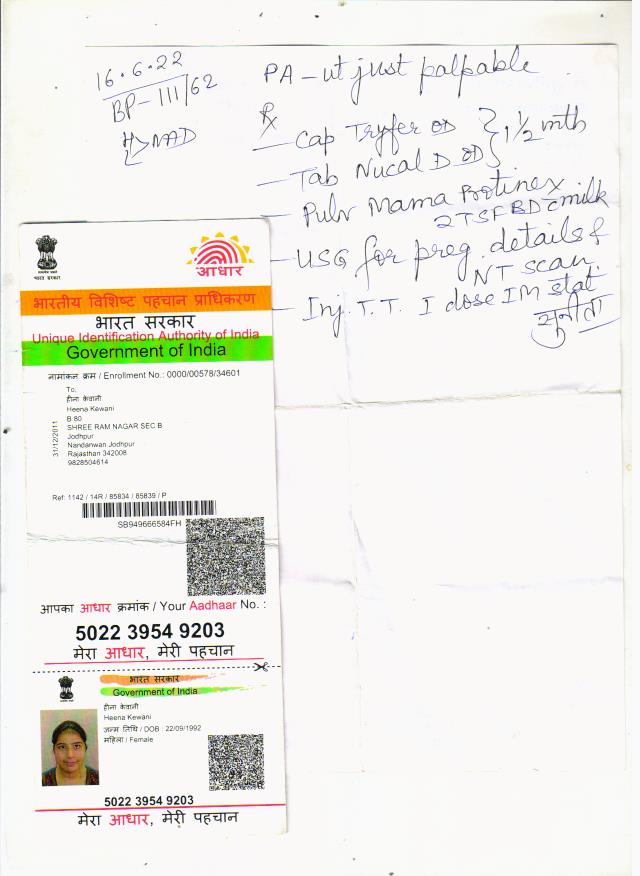 16.6.22
BP - 111/62
NAD
PA - ut just palpable
Rx
- Cap Tryfer OD } 1 1/2 mth
- Tab Nucal D OD
- Pulv Mama Protinex
2TSF BD c milk
- USG for preg. details &
NT scan
- Inj. T.T. I dose IM stat.
सुनीता
आधार
भारतीय विशिष्ट पहचान प्राधिकरण
भारत सरकार
Unique Identification Authority of India
Government of India
नामांकन क्रम / Enrollment No.: 0000/00578/34601
To,
हीना केवानी
Heena Kewani
B 80
SHREE RAM NAGAR SEC B
Jodhpur
Nandanwan Jodhpur
Rajasthan 342008
9828504614
31/12/2011
Ref: 1142 / 14R / 85834 / 85839 / P
SB949666584FH
आपका आधार क्रमांक / Your Aadhaar No. :
5022 3954 9203
मेरा आधार, मेरी पहचान
भारत सरकार
Government of India
हीना केवानी
Heena Kewani
जन्म तिथि / DOB : 22/09/1992
महिला / Female
5022 3954 9203
मेरा आधार, मेरी पहचान